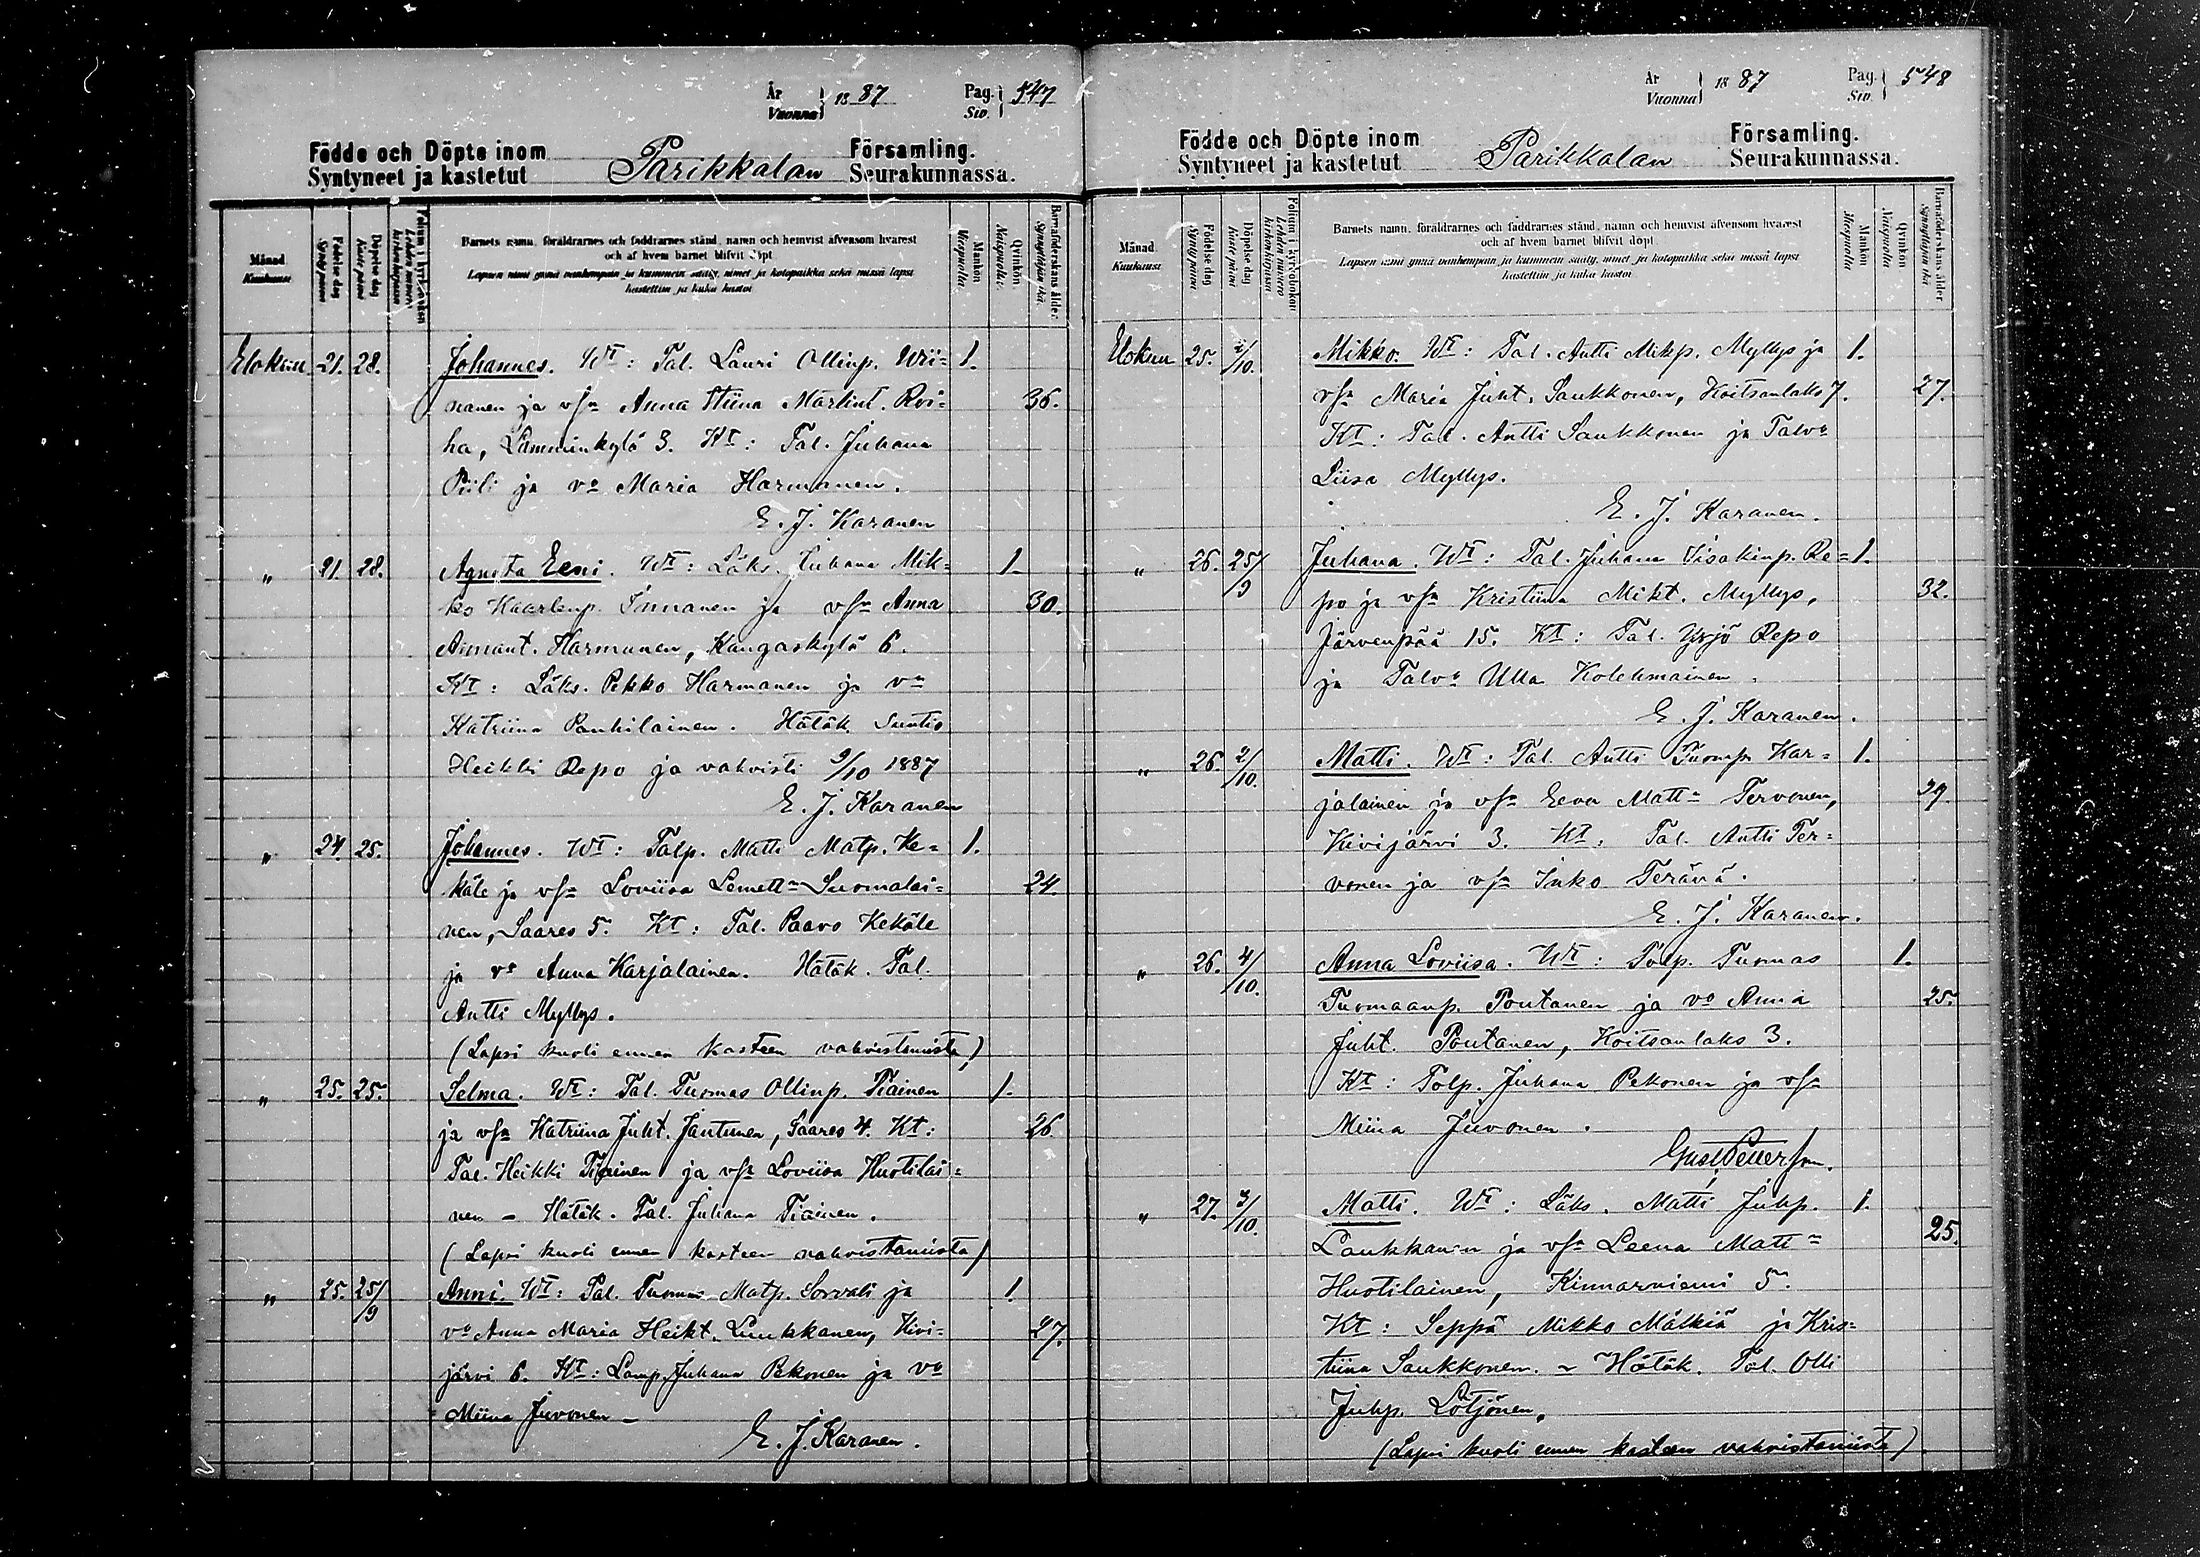 År Vuonna 1887 Pag. Siv. 547
Födde och Döpte inom Parikkalan Församling.
Syntyneet ja kastetut Seurakunnassa.
Månad. Kuukausi
Födelse dag Synty päivä
Döpelse dag Kaste päivä
Folium i kyrkoboken Lehden numero kirkonkirjassa
Barnets namn, föräldrarnes och faddrarnes stånd, namn och hemvist äfvensom hvarest
och af hvem barnet blifvit döpt
Lapsen nimi ynnä vanhempain ja kummein sääty, nimet ja kotopaikka sekä missä lapsi
kastettiin ja kuka kastoi
Mankön Miespuolia
Qvinkön Naispuolia
Barnaföderskans ålder Synnyttäjän ikä
Elokuu 21. 28. Johannes. Wt: Tal. Lauri Ollinp. Wii= 1.
nanen ja vsa Anna Stiina Martint. Roi= 36.
ha, Lamminkylä 3. Kt: Tal. Juhana
Piili ja vo Maria Harmanen.
E. J. Karanen
" 21. 28. Agneta Eeni. Wt: Läks. Juhana Mik= 1.
ko Kaarlenp. Innanen ja vsa Anna 30.
Harmanen, Kangaskylä 6.
Kt: Läks. Pekko Harmanen ja vo
Katriina Pauhilainen. Hätäk. Suntio
Heikki Repo ja vahvisti 9/10 1887
E. J. Karanen
" 24. 25. Johannes. Wt: Talp. Matti Matp. Ke= 1.
käle ja vsa Loviisa Lemett= Suomalai= 24.
nen, Saares 5. Kt: Tal. Paavo Kekäle
ja vo Anna Karjalainen. Hätäk. Tal.
Antti Myllys.
(Lapsi kuoli ennen kasteen vahvistamista)
" 25. 25. Selma. Wt: Tal. Tuomas Ollinp. Tiainen 1.
ja vsa Katriina Juht. Jantunen, Saares 4. Kt: 26.
Tal. Heikki Tiainen ja vsa Loviisa Huotilai=
nen – Hätäk. Tal. Juhana Tiainen.
(Lapsi kuoli ennen kasteen vahvistamista)
" 25. 25/9 Anni. Wt: Tal. Tuomas Matp. Sorvali ja 1.
vo Anna Maria Heikt. Luukkanen, Kivi= 27.
järvi 6. Kt: Lamp. Juhana Pekonen ja vo
Miina Juvonen –
E. J. Karanen.
År Vuonna 1887 Pag. Siv. 548
Födde och Döpte inom Parikkalan Församling.
Syntyneet ja kastetut Seurakunnassa.
Månad. Kuukausi
Födelse dag Synty päivä
Döpelse dag Kaste päivä
Folium i kyrkoboken Lehden numero kirkonkirjassa
Barnets namn, föräldrarnes och faddrarnes stånd, namn och hemvist äfvensom hvarest
och af hvem barnet blifvit döpt
Lapsen nimi ynnä vanhempain ja kummein sääty, nimet ja kotopaikka sekä missä lapsi
kastettiin ja kuka kastoi
Mankön Miespuolia
Qvinkön Naispuolia
Barnaföderskans ålder Synnyttäjän ikä
Elokuu 25. 2/10. Mikko. Wt: Tal. Antti Mikp. Myllys ja 1.
vsa Maria Juht. Saukkonen, Koitsanlaks 7. 27.
Kt: Tal. Antti Saukkonen ja Talvo
Liisa Myllys.
E. J. Karanen.
" 26. 25/9 Juhana. Wt: Tal. Juhana Iisakinp. Re= 1.
po ja vsa Kristiina Mikt. Myllys, 32.
Järvenpää 15. Kt: Tal. Yrjö Repo
ja Talvo Ulla Kolehmainen.
E. J. Karanen.
" 26. 2/10. Matti. Wt: Tal. Antti Tuomp. Kar= 1.
jalainen ja vsa Eeva Matt= Tervonen, 29.
Kivijärvi 3. Kt: Tal. Antti Ter=
vonen ja vsa Inko Terävä.
E. J. Karanen.
" 26. 4/10. Anna Loviisa. Wt: Tolp. Tuomas 1.
Tuomaanp. Poutanen ja vo Anna 25.
Juht. Poutanen, Koitsanlaks 3.
Kt: Tolp. Juhana Pekonen ja vsa
Miina Juvonen.
Gust Petterson.
" 27. 3/10. Matti. Wt: Läks. Matti Juhp. 1.
Laukkanen ja vsa Leena Matt= 25.
Huotilainen, Kinnarniemi 5.
Kt: Seppä Mikko Mälkiä ja Kris=
tiina Saukkonen. – Hätäk. Tal. Olli
Juhp. Lötjönen.
(Lapsi kuoli ennen kasteen vahvistamista)